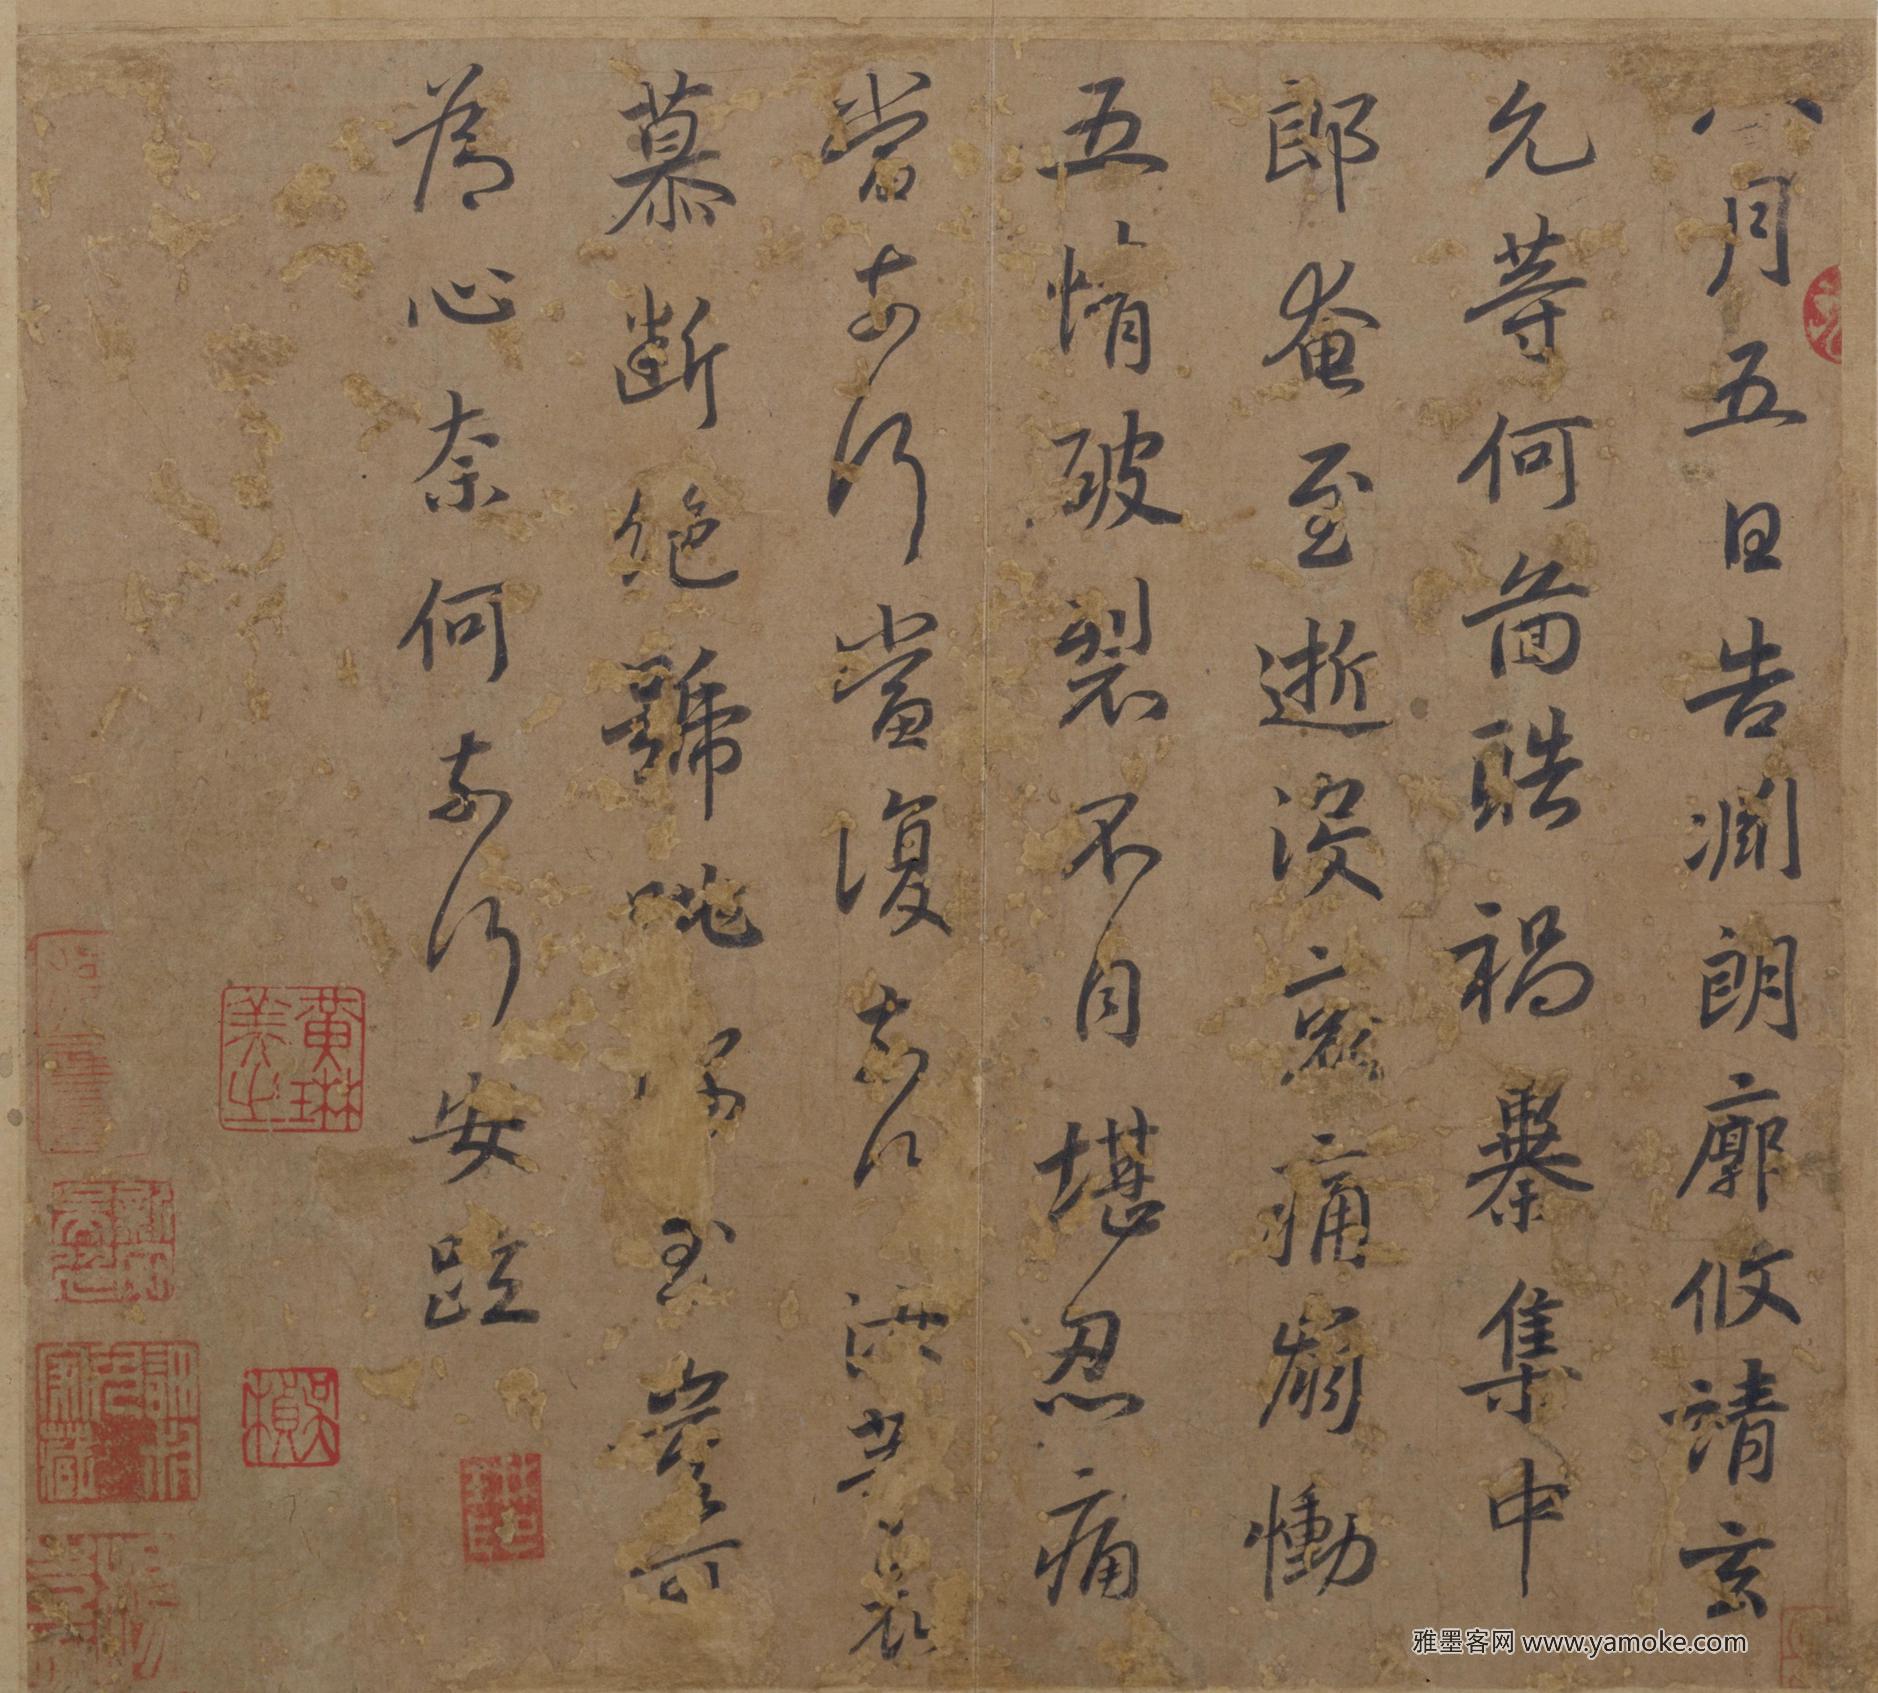 八月五日告淵朗廓攸靖玄
允等何圖酷禍暴集中
郎奄至逝沒哀痛崩慟
五情破裂不自堪忍痛
當奈何當復奈何汝等哀
慕斷絕號咷深至豈可
為心奈何奈何安疏
黃琳美之
吳楨
雅墨客网 www.yamoke.com